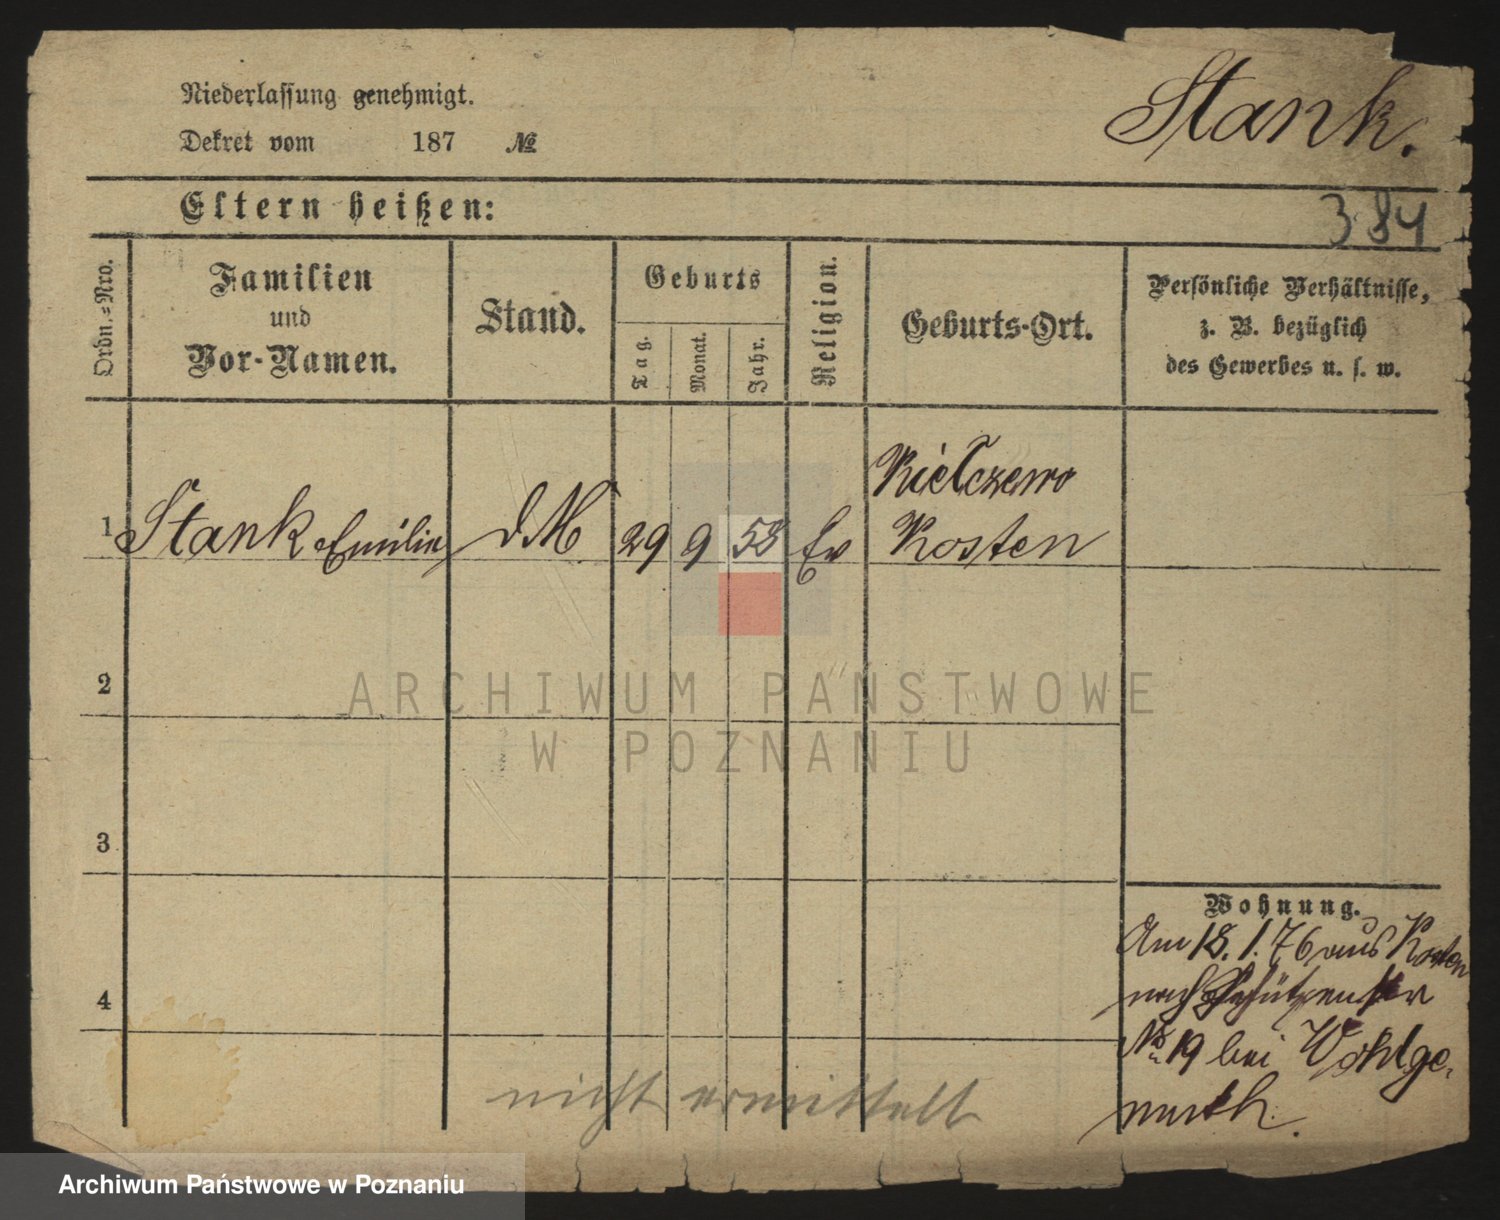 Niederlassung genehmigt.
Dekret vom 187 №
Stank.
Eltern heißen:
384
Ordn.=Nro.
Familien
und
Vor-Namen.
Stand.
Geburts
Tag.
Monat.
Jahr.
Religion.
Geburts-Ort.
Persönliche Verhältnisse,
z. B. bezüglich
des Gewerbes u. s. w.
Kiełczewo
1 Stank Emilie d M 29 9 58 Ev Kosten
2
3
4
Wohnung.
Am 18.1.76 aus Kosten
nach Schützenstr
№ 19 bei Wohlge-
muth.
nicht ermittelt
ARCHIWUM PAŃSTWOWE
W POZNANIU
Archiwum Państwowe w Poznaniu